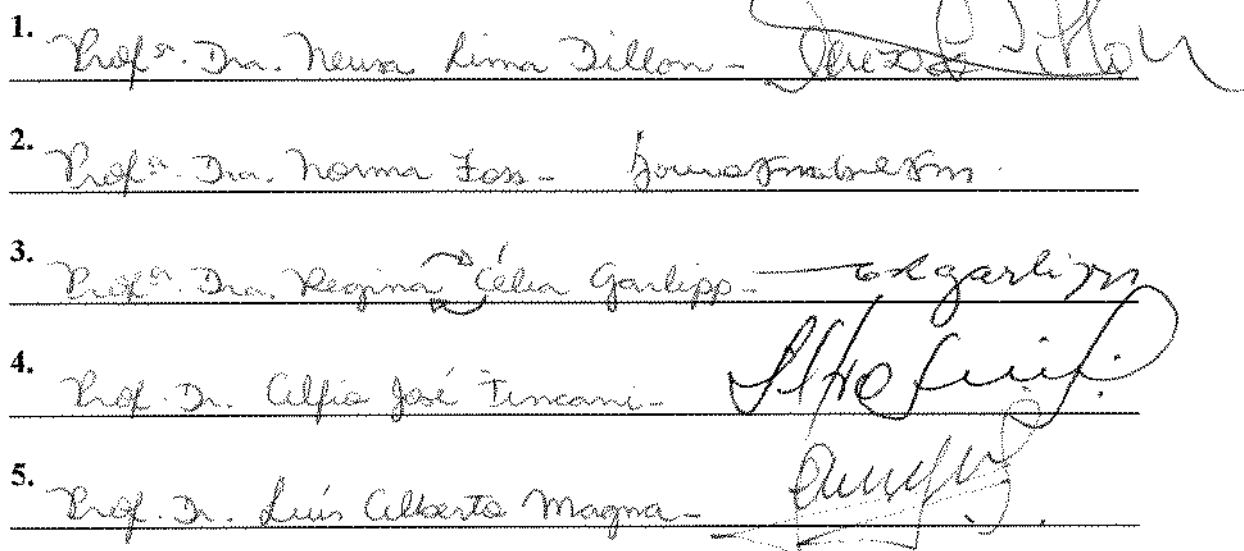 1. Profª. Dra. Neusa Lima Dillon -
2. Profª. Dra. Norma Foss -
3. Profª. Dra. Regina Célia Garlipp - garlipp
4. Prof. Dr. Alfio José Tincani -
5. Prof. Dr. Luís Alberto Magna -